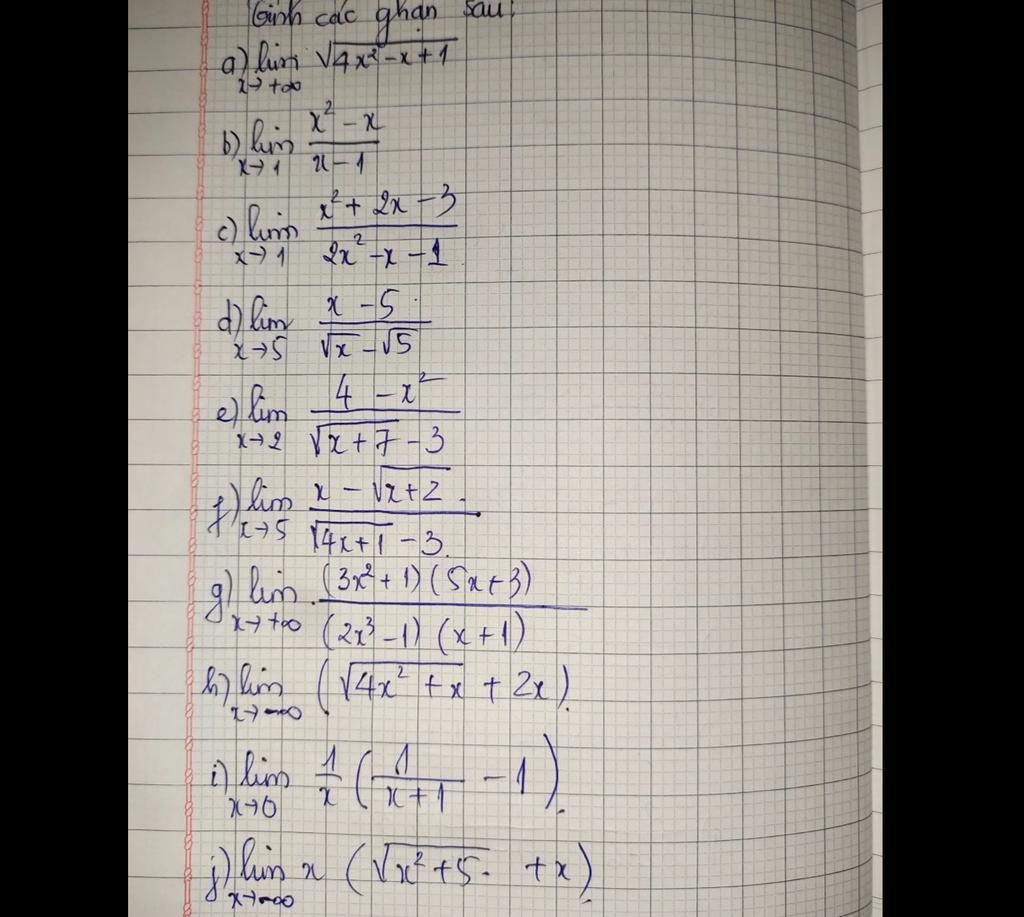 Tính các ghạn sau:
a) lim x→+∞ √(4x² - x + 1)
b) lim x→1 (x² - x)/(x - 1)
c) lim x→1 (x² + 2x - 3)/(2x² - x - 1)
d) lim x→5 (x - 5)/(√x - √5)
e) lim x→2 (4 - x²)/(√(x + 7) - 3)
f) lim x→5 (x - √(x + 2))/(√(4x + 1) - 3)
g) lim x→+∞ ((3x² + 1)(5x + 3))/((2x³ - 1)(x + 1))
h) lim x→-∞ (√(4x² + x) + 2x)
i) lim x→0 1/x (1/(x + 1) - 1)
j) lim x→-∞ x (√(x² + 5) + x)